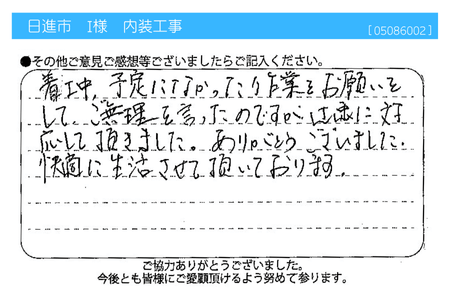 日進市 I様 内装工事
[05086002]
●その他ご意見ご感想等ございましたらご記入ください。
着工中、予定になかったり作業をお願いを
して、ご無理を言ったのですが 対
応して頂きました。ありがとうございました。
快適に生活させて頂いております。
ご協力ありがとうございました。
今後とも皆様にご愛顧頂けるよう努めて参ります。